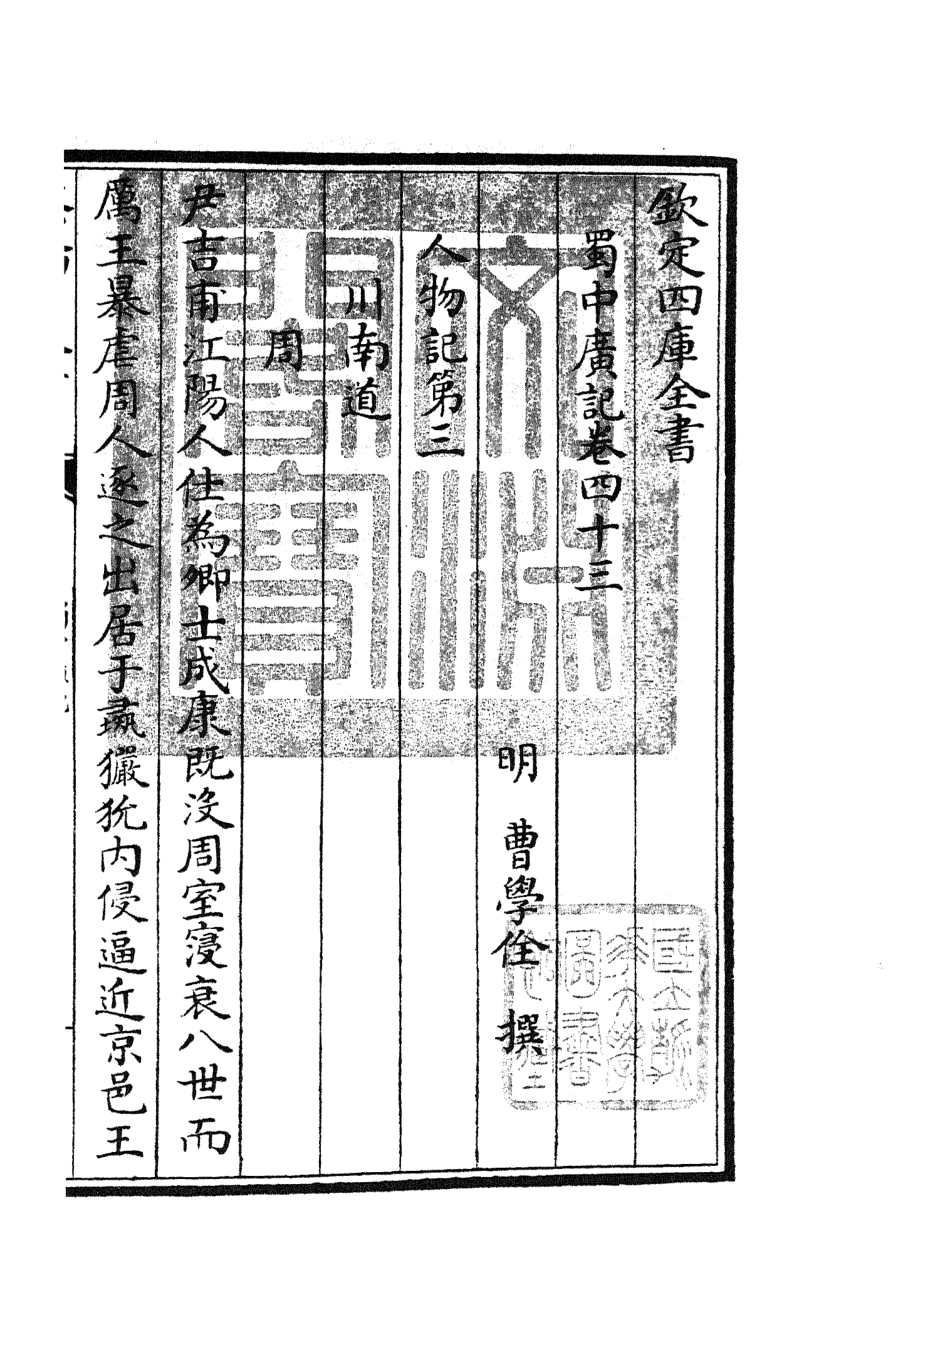 欽定四庫全書
蜀中廣記卷四十三
明 曹學佺 撰
人物記第三
川南道
周
尹吉甫江陽人仕為卿士成康既没周室寖衰八世而
厲王暴虐周人逐之出居于彘玁狁内侵逼近京邑王
文淵閣寶